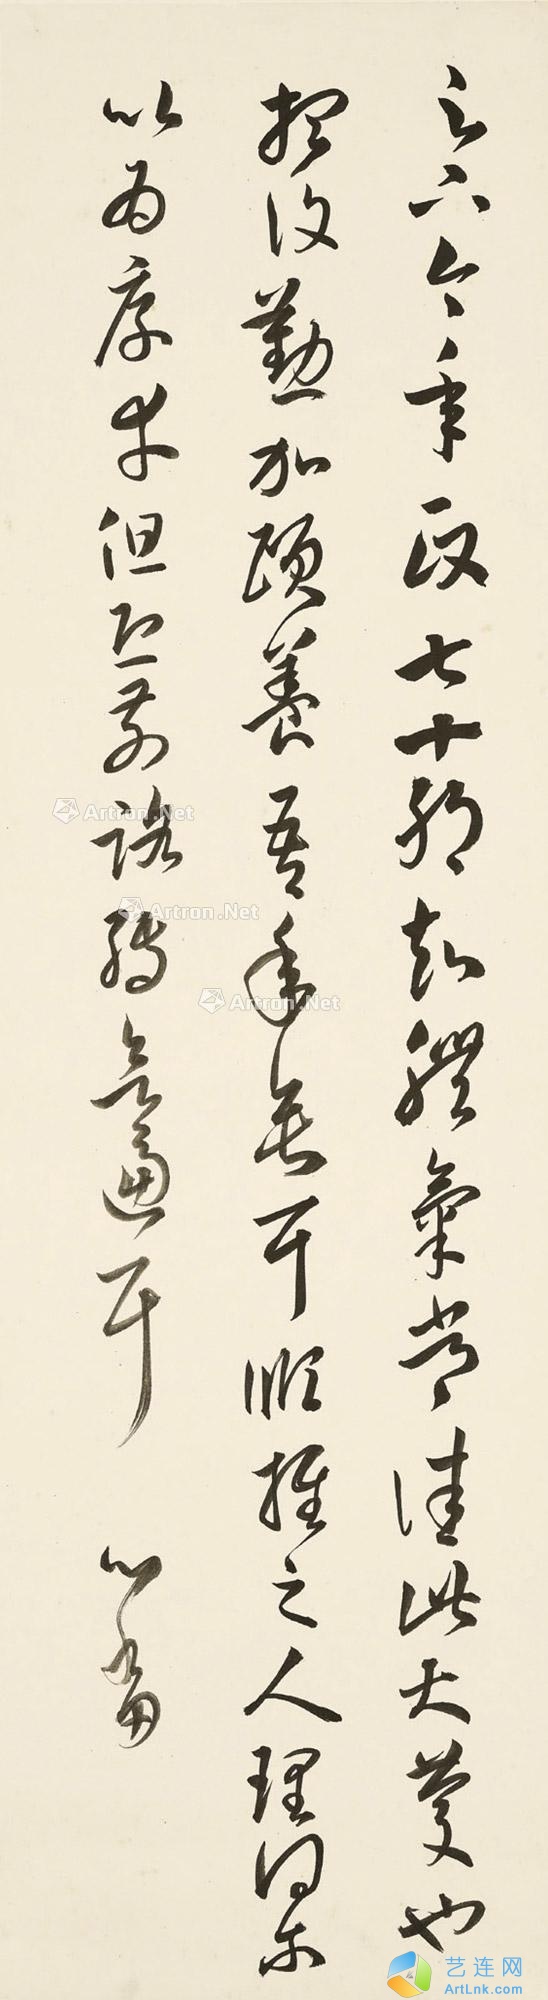 云足下今年政七十耶知體氣常佳此大慶也
想復勤加頤養吾年垂耳順推之人理得爾
以為厚幸但恐前路轉欲逼耳 心畬
Artron.Net
Artron.Net
Artron.Net
艺连网
ArtLnk.com